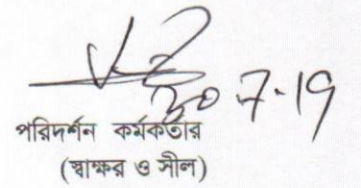 30-7-19
পরিদর্শন কর্মকর্তার
(স্বাক্ষর ও সীল)